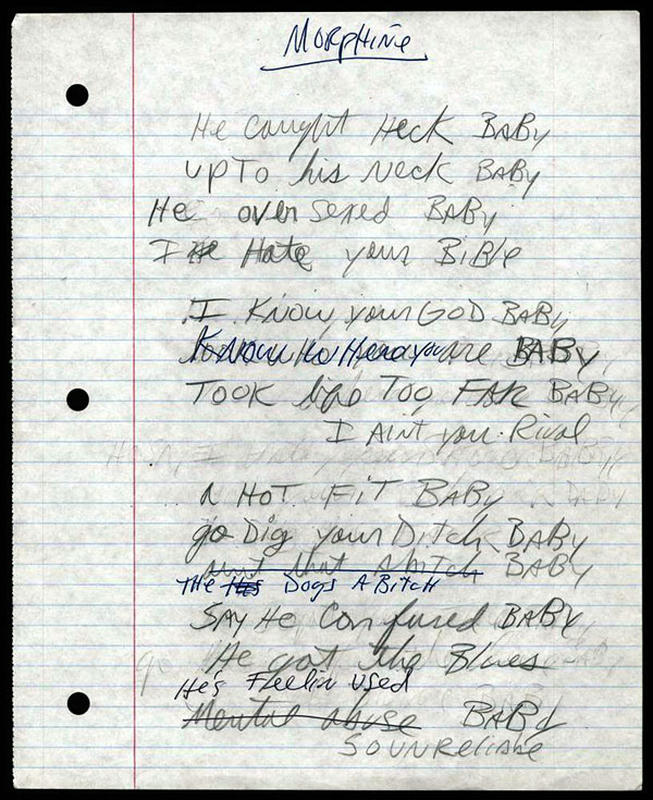 Morphine
He caught Heck BABy
up To his Neck BABy
He over sexed BABy
I Hate your BiBle
I Know your GOD BABy
BABy
TOOK life TOO FAR BABy
I AINT your Rival
a HOT FiT BABy
go Dig your Ditch BABy
aint that a bitch BABy
THE Dogs A BiTCH
SAy He Confused BABy
He got the Blues
He's Feelin Used
Mental abuse BABy
SO UNReliable